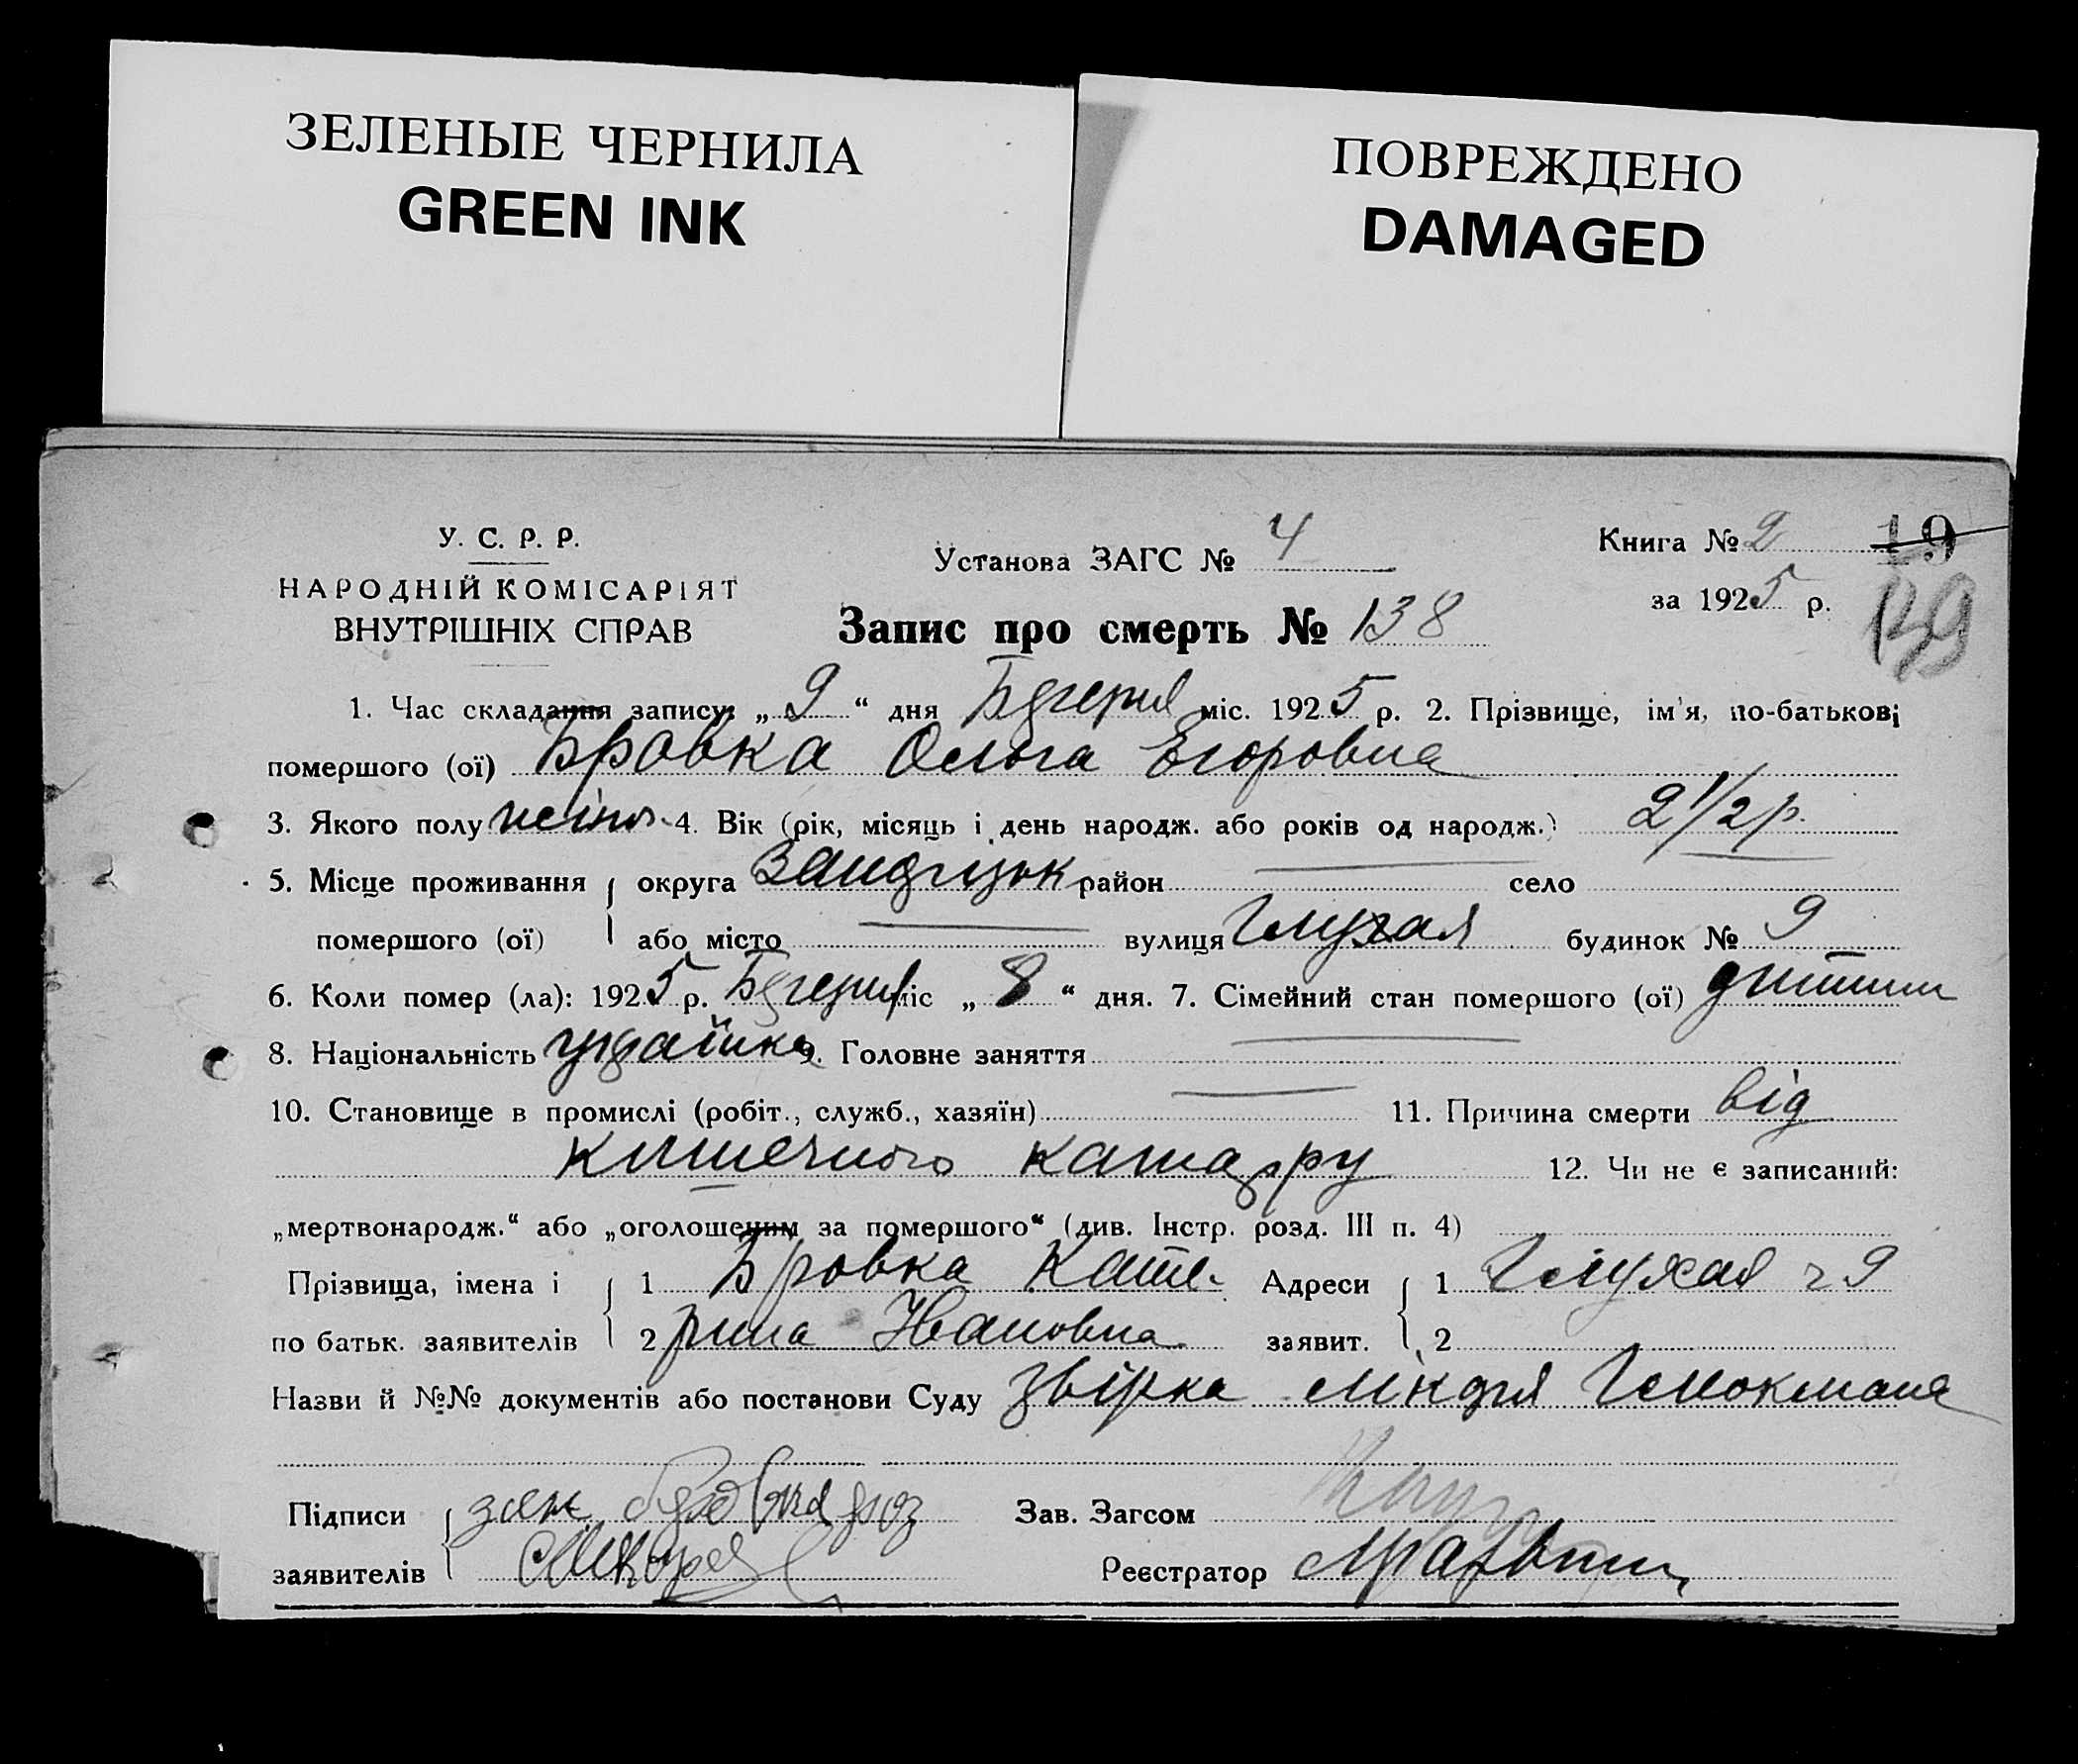 ЗЕЛЕНЫЕ ЧЕРНИЛА
GREEN INK
ПОВРЕЖДЕНО
DAMAGED
У. С. Р. Р.
НАРОДНІЙ КОМІСАРІЯТ
ВНУТРІШНІХ СПРАВ
Установа ЗАГС № 4
Запис про смерть № 138
Книга № 2 19
за 1925 р. 139
1. Час складання запису: „ 9 “ дня міс. 1925 р. 2. Прізвище, ім'я, по-батькові
помершого (ої) Бровка Ольга Егоровна
3. Якого полу жіноч. 4. Вік (рік, місяць і день народж. або років од народж.) 2 1/2 р.
5. Місце проживання округа район село
помершого (ої) або місто вулиця Глухая будинок № 9
6. Коли помер (ла): 1925 р. міс „ 8 “ дня. 7. Сімейний стан помершого (ої) дитина
8. Національність 9. Головне заняття
10. Становище в промислі (робіт., служб., хазяїн) 11. Причина смерти від
кишечного катару
12. Чи не є записаний:
„мертвонародж.“ або „оголошеним за помершого“ (див. Інстр. розд. III п. 4)
Прізвища, імена і 1 Бровка Кате- Адреси 1 Глухая ч 9
по батьк. заявителів 2 рина Ивановна заявит. 2
Назви й №№ документів або постанови Суду
Підписи Зав. Загсом
заявителів Реєстратор